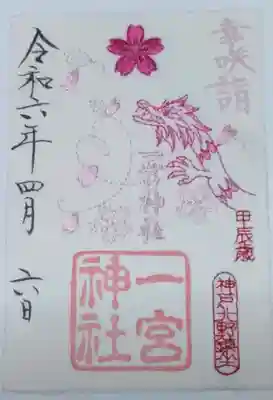 幸咲詣
甲辰歳
神戸北野鎮守
一宮神社
一宮
神社
令和六年四月六日